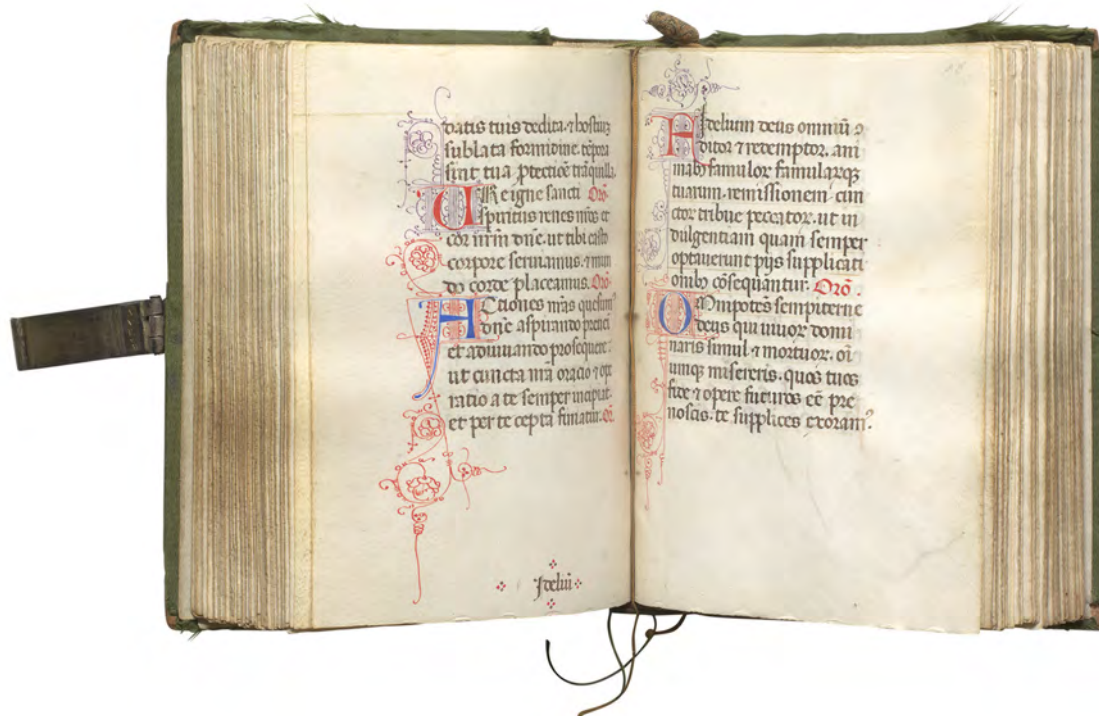 datis tuis dedita. ⁊ hostium
sublata formidine. tẽpora
sint tua ꝓtectiõe trãquilla.
URe igne sancti Orõ
spiritus renes nr̃os et
cor nr̃m dñe. ut tibi casto
corpore seruiamus. ⁊ mun
do corde placeamus. Orõ
ACtiones nr̃as quesumꝰ
dñe aspirando preueni
et adiuuando prosequere.
ut cuncta nr̃a oracio ⁊ ope
ratio a te semper incipiat.
et per te cepta finiatur. Oñ
Ideliũ
FIdelium deus omniũ ↄ
ditor ⁊ redemptor. ani
mabꝫ famuloꝝ famularũqꝫ
tuarum. remissionem cun
ctoꝝ tribue peccatoꝝ. ut in
dulgentiam quam semper
optauerunt pijs supplicati
onibꝫ cõsequantur. Orõ.
OMnipotẽs sempiterne
deus qui uiuoꝝ domi
naris simul ⁊ mortuoꝝ. oĩ
umqꝫ misereris. quos tuos
fide ⁊ opere futuros eẽ pre
noscis. te supplices exoramꝰ.